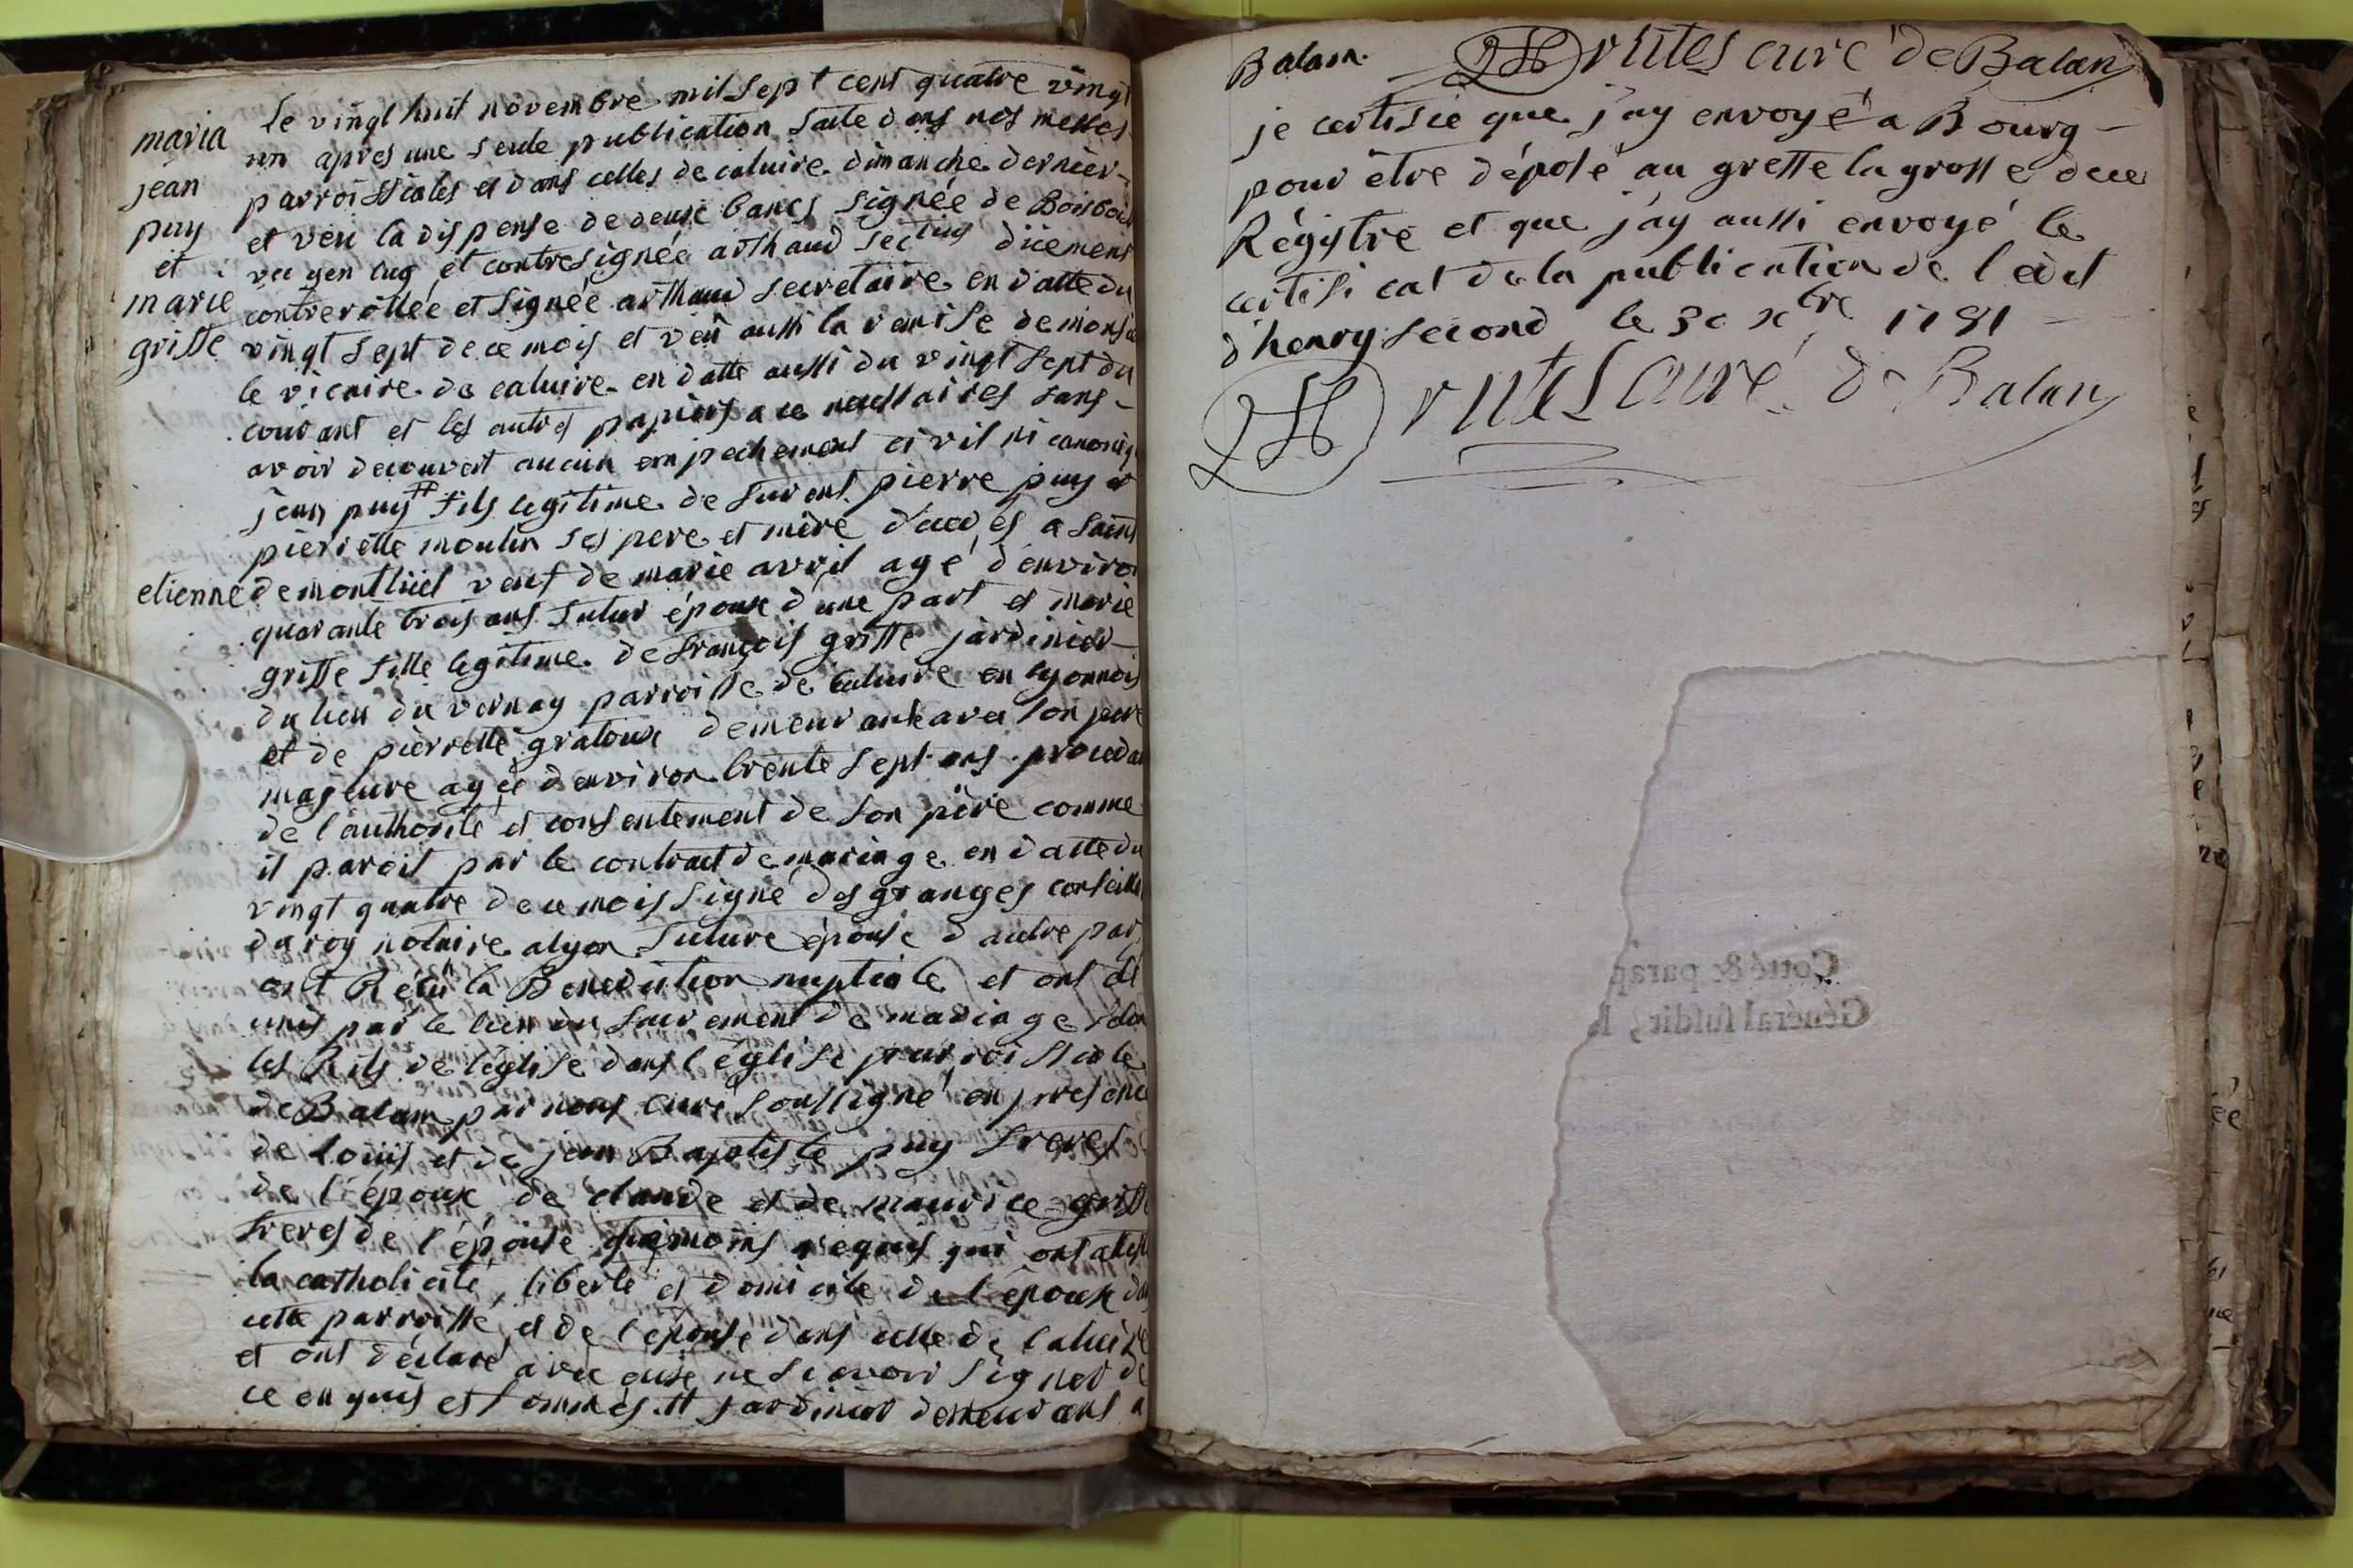 maria
jean
puy
et
marie
griffe
Le vingt huit novembre mil sept cent quatre vingt
un apres une seule publication faite dans nos messes
parroissiales et dans celles de caluire dimanche dernier
et veu la dispense de deux bancs signée de Boisboi
vic gen lug et contresignée arthaud düement
controrollée et signée arthaud secretaire en datte du
vingt sept de ce mois et veü aussi la remise de mons
le vicaire de caluire en datte aussi du vingt sept du
courant et les autres papiers a ce necessaires sans
avoir decouvert aucun empechement civil ni canoniq
jean puy # fils legitime de furent pierre puy et
pierrette moulin ses pere et mère décédés a saint
etienne de montluel veuf de marie avril agé d'enviro
quarante trois ans futur époux d'une part et marie
griffe fille legitime de françois griffe jardinier
du lieu du vernay parroisse de caluire en lyonnois
et de pierrette gratoux demeurante avec son pere
majeure agée d'environ trente sept ans procedan
de l'authorité et consentement de son père comme
il paroit par le contract de mariage en datte du
vingt quatre de ce mois signé des granges conseille
du roy notaire a lyon future épouse d'autre par
ont Réçû la Benediction nuptiale et ont été
unis par le lien du sacrement de mariage selon
les Rits de l'église dans l'église parroissiale
de Balam par nous curé soussigné en presence
de loüis et de jean Baptiste puy freres
de l'époux de claude et de maurice griffe
freres de l'épouse temoins requis qui ont attest
la catholicité, liberté et domicile de l'époux da
cette parroisse et de l'épouse dans celle de Caluire
et ont déclaré avec eux ne sçavoir signer de
ce enquis et sommés # jardinier demeurant a
Balam. Drutes curé de Balan
je certifie que j'ay envoyé a Bourg
pour être déposé au greffe la grosse de ce
Régistre et que j'ay aussi envoyé le
certificat de la publication de l'edit
d'henry second le 30 xbre 1781
Drutes curé de Balan
Cotté & parap
Général susdit,